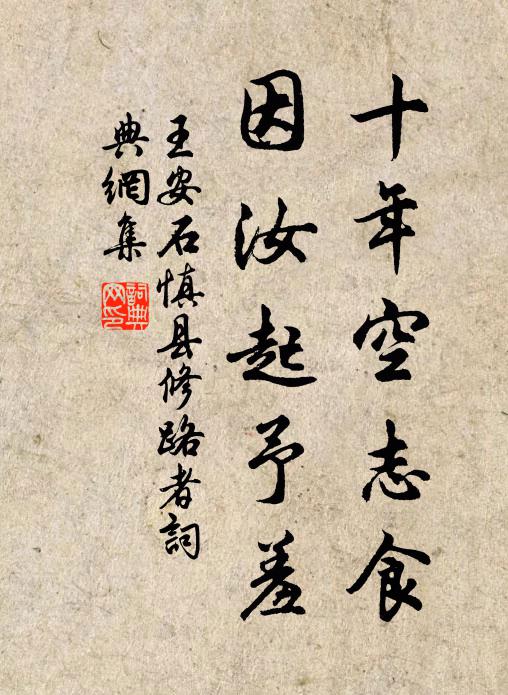 十年空志食
因汝起予羞
王安石慎县修路者詞
典網集
詞典網印